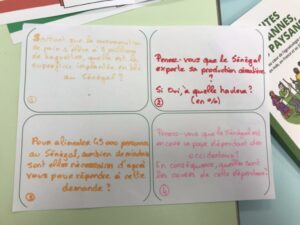 Sachant que la consommation
de pain s'élève à 8 millions
de baguettes, quelle est la
superficie implantée en blé
au Sénégal ?
①
Pensez-vous que le Sénégal
exporte sa production céréalière
?
Si oui, à quelle hauteur ?
(en %)
②
Pour alimenter 45 000 personnes
au Sénégal, combien de
sont nécessaires d'après
vous pour répondre à cette
demande ?
③
Pensez-vous que le Sénégal est
encore un pays dépendant des
occidentaux ?
En conséquence, quelles sont
les causes de cette dépendance ?
④
PAYSA